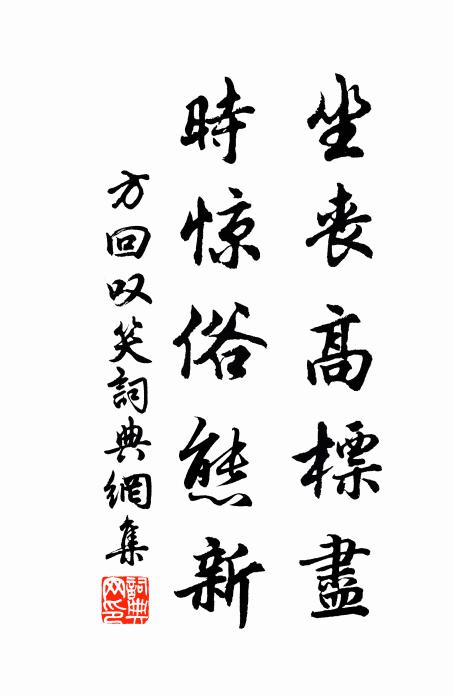 坐丧高標盡
時惊俗態新
方回叹笑詞典網集
詞典網印